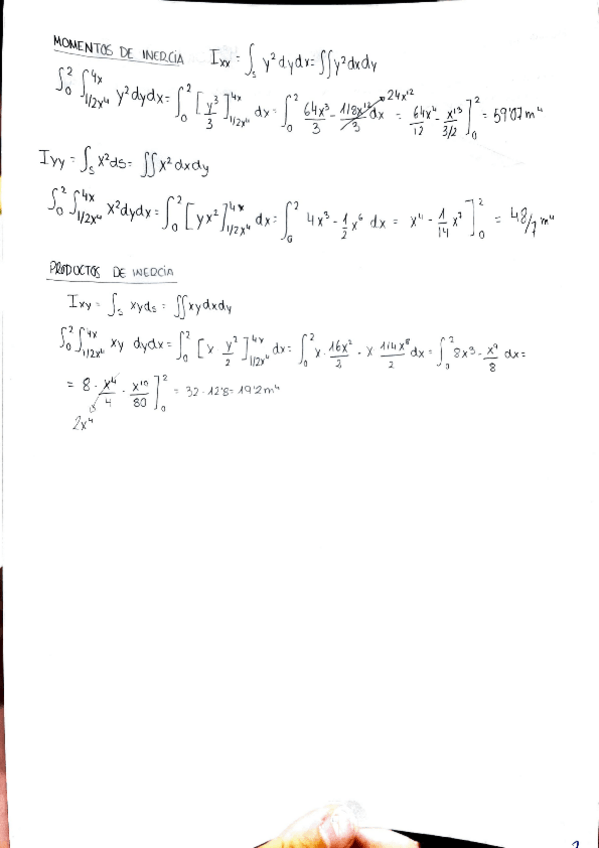 MOMENTOS DE INERCIA Ixx = ∫s y² dy dx = ∬ y² dx dy
∫₀² ∫_{1/2x⁴}^{4x} y² dy dx = ∫₀² [y³/3]_{1/2x⁴}^{4x} dx = ∫₀² 64x³/3 - 1/8x¹²/3 dx 24x¹² = 64x⁴/12 - x¹³/312 ]₀² = 59'07 m⁴
Iyy = ∫s x² ds = ∬ x² dx dy
∫₀² ∫_{1/2x⁴}^{4x} x² dy dx = ∫₀² [yx²]_{1/2x⁴}^{4x} dx = ∫₀² 4x³ - 1/2 x⁶ dx = x⁴ - 1/14 x⁷ ]₀² = 48/7 m⁴
PRODUCTOS DE INERCIA
Ixy = ∫s xy ds = ∬ xy dx dy
∫₀² ∫_{1/2x⁴}^{4x} xy dy dx = ∫₀² [x y²/2]_{1/2x⁴}^{4x} dx = ∫₀² x · 16x²/2 - x 1/4x⁸/2 dx = ∫₀² 8x³ - x⁹/8 dx =
= 8 · x⁴/4 - x¹⁰/80 ]₀² = 32 - 12'8 = 19'2 m⁴
2x⁴